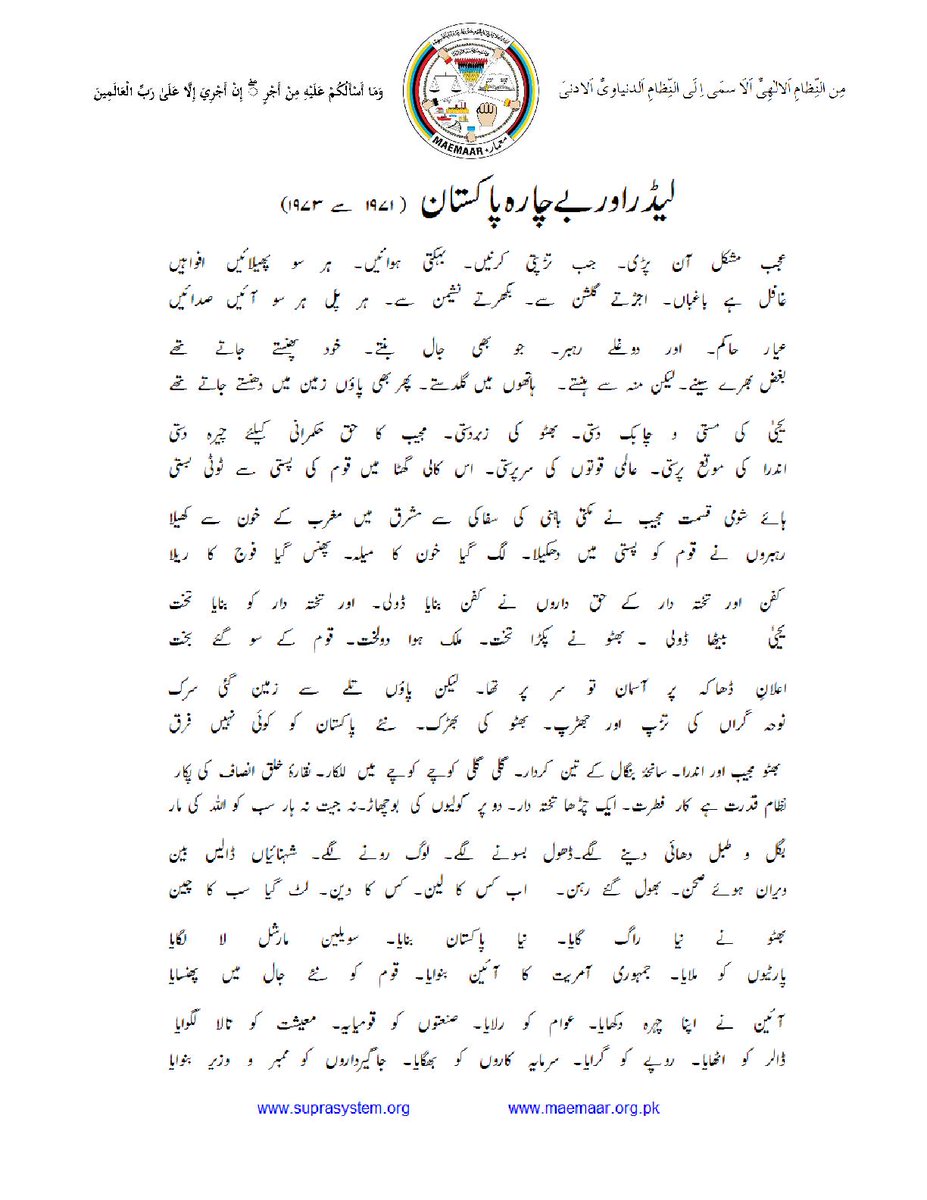 مِن النِّظامِ اَلالٰهِیٌ اَلَا سمَی اِلَی النِّظامِ اَلدنیاویٌ اَلادنیَ
وَمَا أَسْأَلُكُمْ عَلَيْهِ مِنْ أَجْرٍ ۖ إِنْ أَجْرِيَ إِلَّا عَلَىٰ رَبِّ الْعَالَمِينَ
MAEMAAR معمار
لیڈر اور بے چارہ پاکستان (۱۹۷۱ سے ۱۹۷۳)
عجب مشکل آن پڑی۔ جب تڑپتی کرنیں۔ بہکتی ہوائیں۔ ہر سو پھیلائیں افواہیں
غافل ہے باغباں۔ اجڑتے گلشن سے۔ بکھرتے نشیمن سے۔ ہر پل ہر سو آئیں صدائیں
عیار حاکم۔ اور دوغلے رہبر۔ جو بھی جال بنتے۔ خود پھنستے جاتے تھے
بغض بھرے سینے۔ لیکن منہ سے ہنستے۔ ہاتھوں میں گلدستے۔ پھر بھی پاؤں زمین میں دھنستے جاتے تھے
یحیٰی کی مستی و چابک دستی۔ بھٹو کی زبردستی۔ مجیب کا حق حکمرانی کیلئے چیرہ دستی
اندرا کی موقع پرستی۔ عالمی قوتوں کی سرپرستی۔ اس کالی گھٹا میں قوم کی پستی سے ٹوٹی بستی
ہائے شومی قسمت مجیب نے مکتی باہنی کی سفاکی سے مشرق میں مغرب کے خون سے کھیلا
رہبروں نے قوم کو پستی میں دھکیلا۔ لگ گیا خون کا میلہ۔ پھنس گیا فوج کا ریلا
کفن اور تختہ دار کے حق داروں نے کفن بنایا ڈولی۔ اور تختہ دار کو بنایا تخت
یحیٰی بیٹھا ڈولی ۔ بھٹو نے پکڑا تخت۔ ملک ہوا دولخت۔ قوم کے سو گئے بخت
اعلانِ ڈھاکہ پر آسمان تو سر پر تھا۔ لیکن پاؤں تلے سے زمین گئی سرک
نوحہ گراں کی تڑپ اور جھڑپ۔ بھٹو کی بھڑک۔ نئے پاکستان کو کوئی نہیں فرق
بھٹو مجیب اور اندرا۔ سانحۂ بنگال کے تین کردار۔ گلی گلی کوچے کوچے میں للکار۔ نقارۂ خلق انصاف کی پکار
نظام قدرت ہے کار فطرت۔ ایک چڑھا تختہ دار۔ دو پر گولیوں کی بوچھاڑ۔ نہ جیت نہ ہار سب کو اللہ کی مار
بگل و طبل دھائی دینے لگے۔ ڈھول بسونے لگے۔ لوگ رونے لگے۔ شہنائیاں ڈالیں بین
ویران ہوئے صحن۔ بھول گئے رہن۔ اب کس کا لین۔ کس کا دین۔ لٹ گیا سب کا چین
بھٹو نے نیا راگ گایا۔ نیا پاکستان بنایا۔ سویلین مارشل لا لگایا
پارٹیوں کو ملایا۔ جمہوری آمریت کا آئین بنوایا۔ قوم کو نئے جال میں پھنسایا
آئین نے اپنا چہرہ دکھایا۔ عوام کو رلایا۔ صنعتوں کو قومیایہ۔ معیشت کو تالا لگوایا
ڈالر کو اٹھایا۔ روپے کو گرایا۔ سرمایہ کاروں کو بھگایا۔ جاگیرداروں کو ممبر و وزیر بنوایا
www.suprasystem.org www.maemaar.org.pk